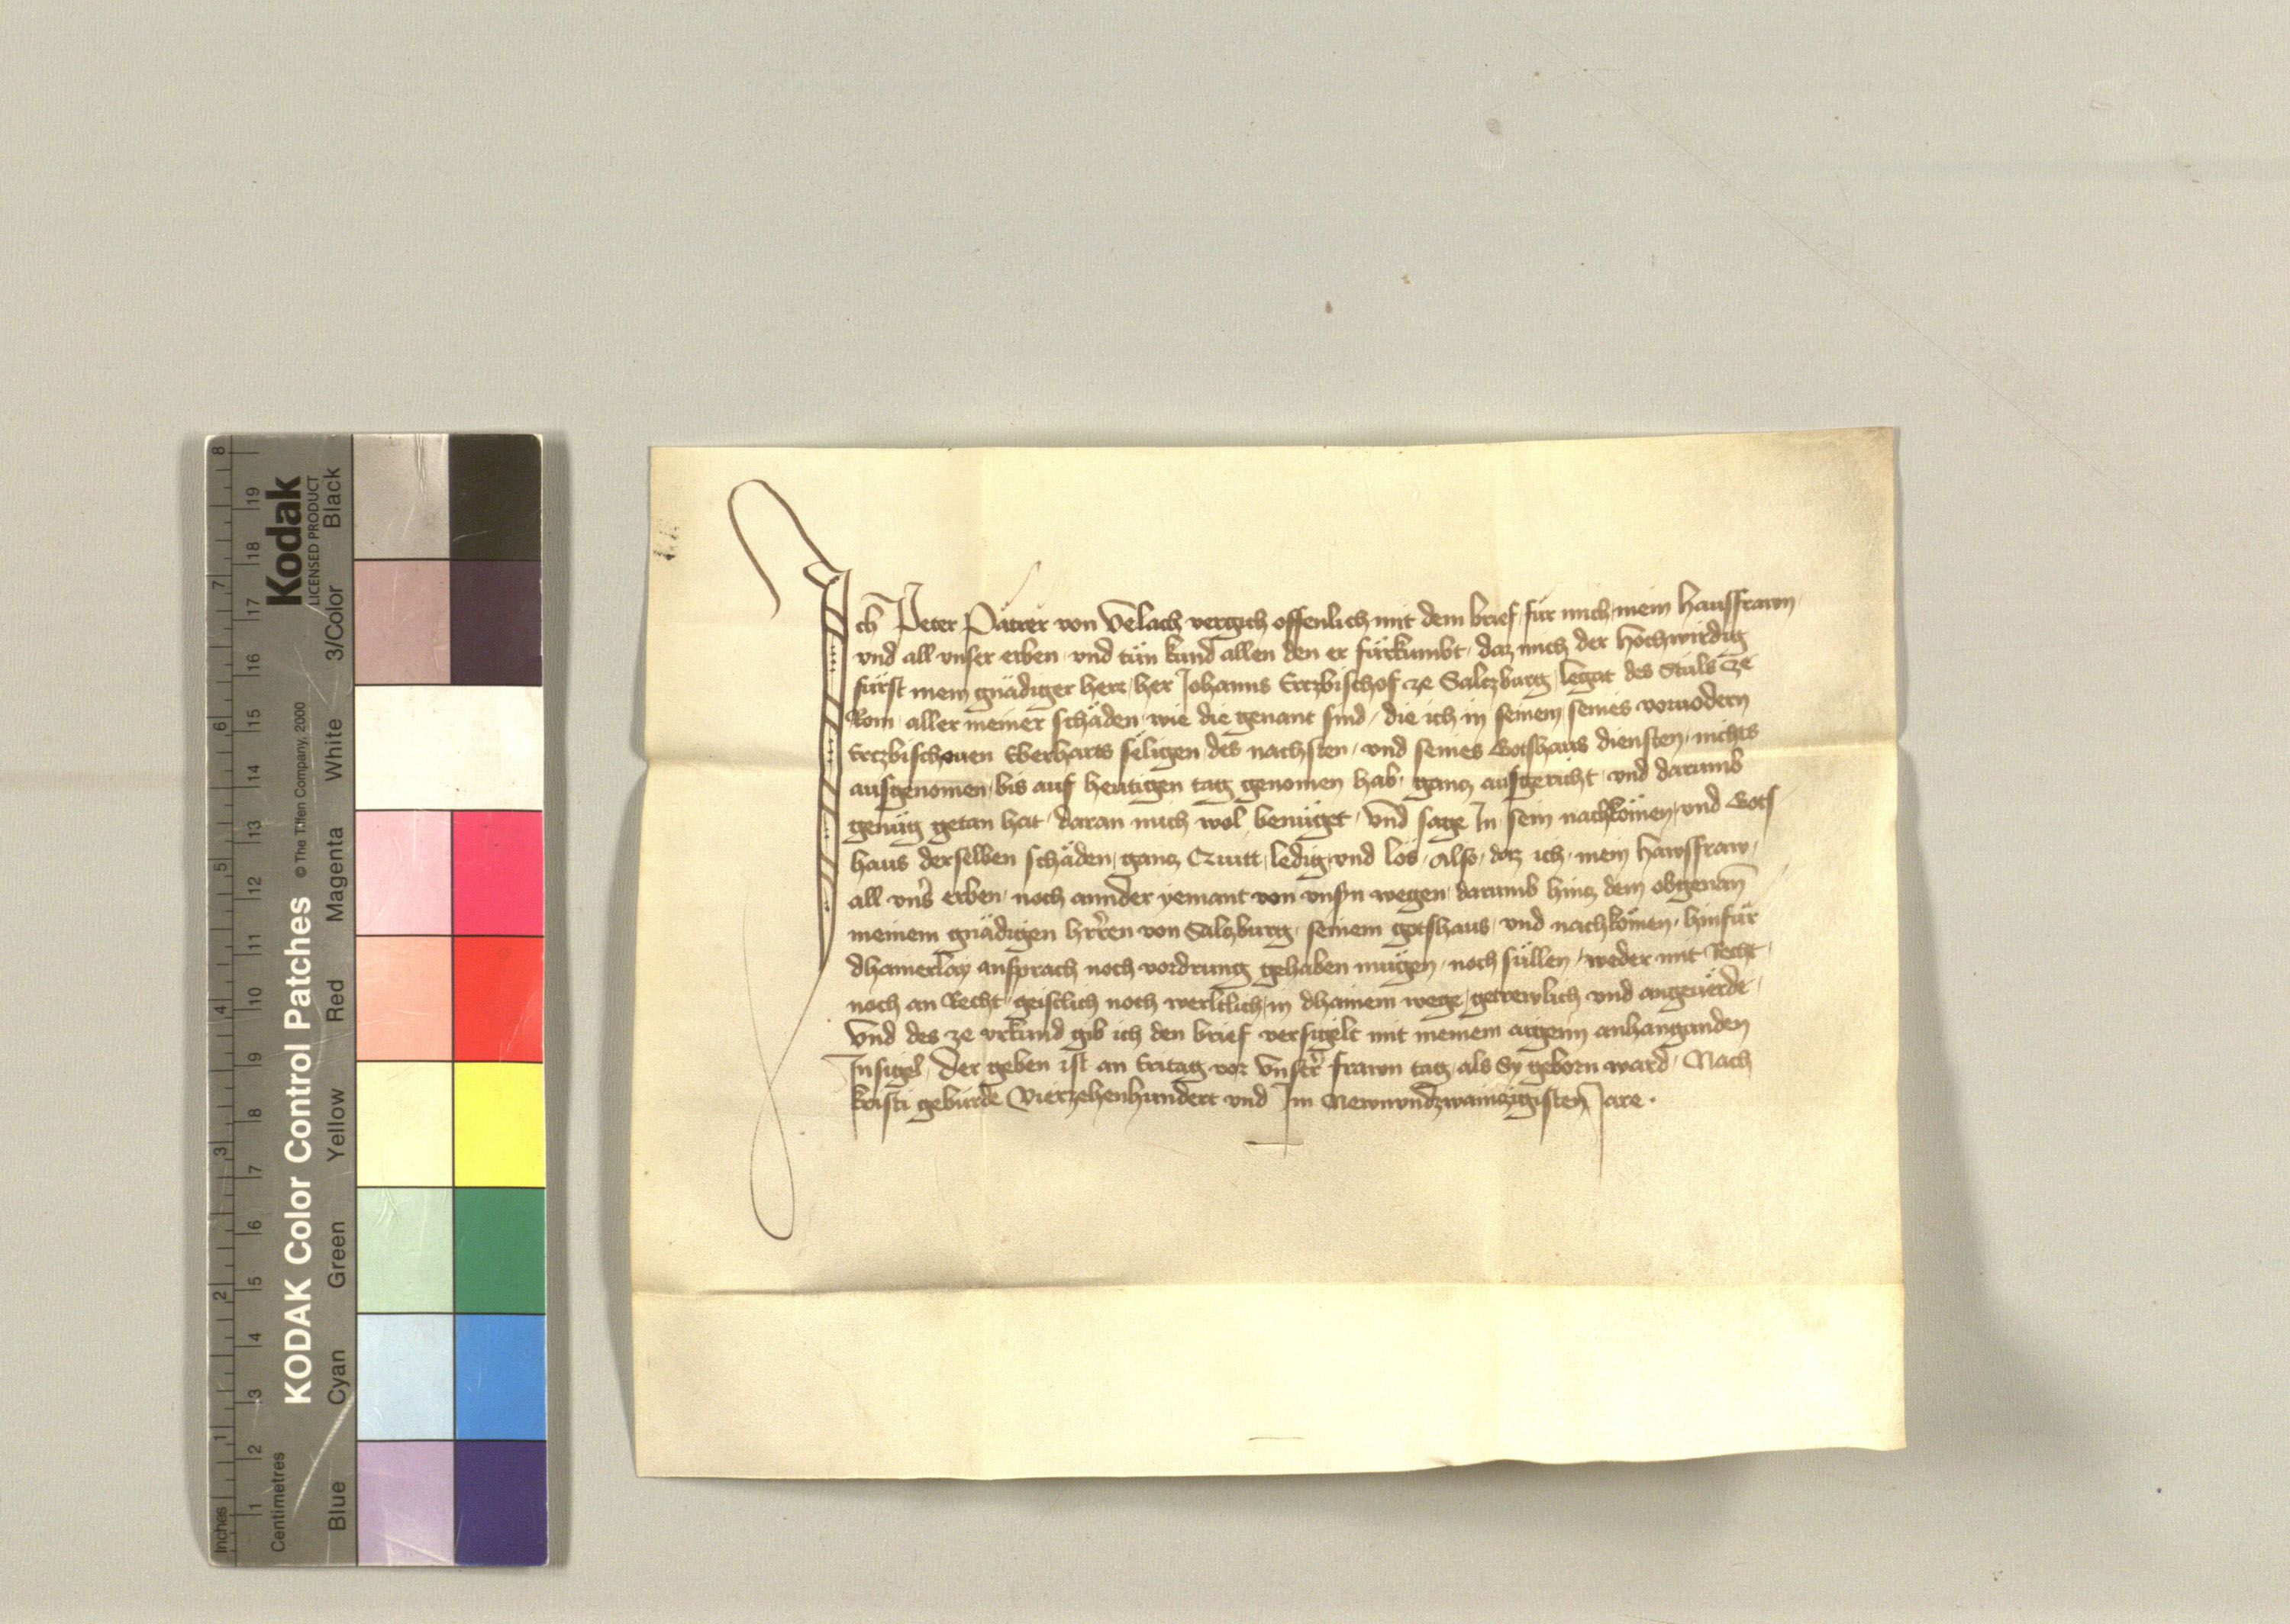 Ich Peter Pätrer von Velach vergich offenlich mit dem brief, für mich, mein hausfrawn,
vnd all vnser erben, vnd tün kund allen den er fürkumbt, daz mich der Hochwirdig
fürst mein gnädiger herr, her Johanns Ertzbischof ze Saltzburg, legat des Stüls ze
Rom, aller meiner schäden, wie die genant sind, die ich in seinem, seines vorvodern
Ertzbischouen Eberharts säligen, des nachsten, vnd seines Gotshaus diensten, nichts
ausgenomen, bis auf hewtigen tag genomen hab, gantz ausgericht, vnd darumb
genüg getan hat, daran mich wol benüget, Vnd sage In, sein nachkömen, vnd Gots
haus derselben schäden, gantz Quitt, ledig, vnd los, Also, daz ich, mein hawsfraw,
all vns̄ erben, noch annder yemant von vnsn̄ wegen, darumb hintz dem obgenan̄
meinem gnädigen hr̄ren von Saltzburg, seinem gotshaus, vnd nachkömen, hinfür
dhainerlay ansprach noch vordrung gehaben mügen, noch süllen, weder mit Recht,
noch an Recht, geistlich noch werltlich, in dhainem wege, getrewlich vnd angeuërde,
Vnd des ze vrkund gib ich den brief versigelt mit meinem aigenn anhanganden
Insigel, Der geben ist an Eritag vor Vnser̄ frawn tag, als Sy geborn ward, Nach
kristi gebürde Vierzehenhundert vnd Im Newnvndzwaintzigisten Jare.
KODAK Color Control Patches
© The Tiffen Company, 2000
Kodak
LICENSED PRODUCT
Inches 1 2 3 4 5 6 7 8
Centimetres 1 2 3 4 5 6 7 8 9 10 11 12 13 14 15 16 17 18 19
Blue Cyan Green Yellow Red Magenta White 3/Color Black